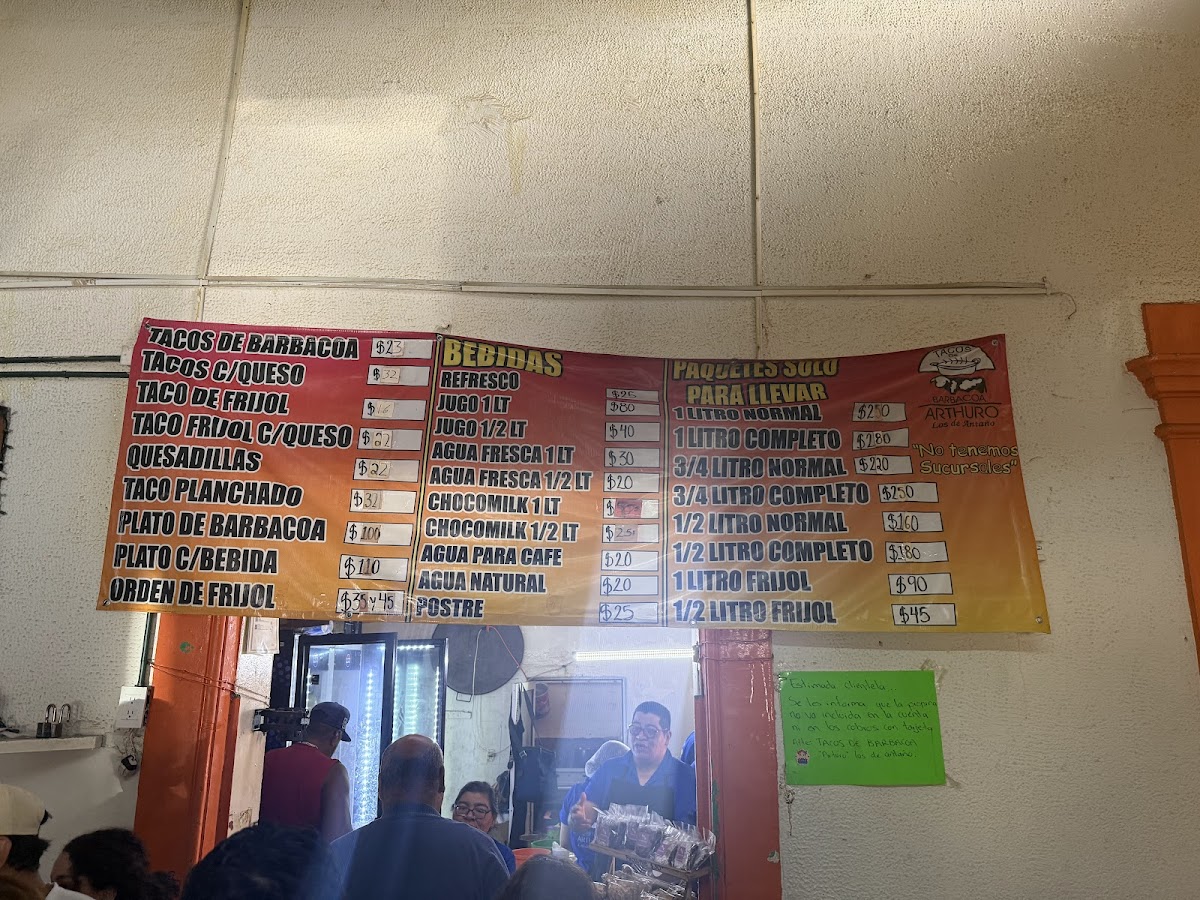 TACOS DE BARBACOA $23
TACOS C/QUESO $32
TACO DE FRIJOL $16
TACO FRIJOL C/QUESO $27
QUESADILLAS $22
TACO PLANCHADO $31
PLATO DE BARBACOA $100
PLATO C/BEBIDA $110
ORDEN DE FRIJOL $35 y 45
BEBIDAS
REFRESCO $25
JUGO 1 LT $80
JUGO 1/2 LT $40
AGUA FRESCA 1 LT $30
AGUA FRESCA 1/2 LT $20
CHOCOMILK 1 LT $
CHOCOMILK 1/2 LT $25
AGUA PARA CAFE $20
AGUA NATURAL $20
POSTRE $25
PAQUETES SOLO
PARA LLEVAR
1 LITRO NORMAL $250
1 LITRO COMPLETO $280
3/4 LITRO NORMAL $220
3/4 LITRO COMPLETO $250
1/2 LITRO NORMAL $160
1/2 LITRO COMPLETO $180
1 LITRO FRIJOL $90
1/2 LITRO FRIJOL $45
TACOS
BARBACOA
ARTHURO
Los de Antaño
"No tenemos
Sucursales"
Estimada clientela...
Se les informa que la propina
no va incluida en la cuenta
ni en los cobros con tarjeta
Atte TACOS DE BARBACOA
"Arturo" los de antaño.